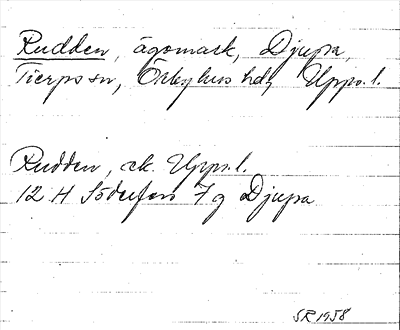 Rudden, ägomark, Djupa,
Tierps sn, Örbyhus hd, Upps. l.
Rudden, ek. Upps. l.
12 H Söderfors 7g Djupa
SR 1958